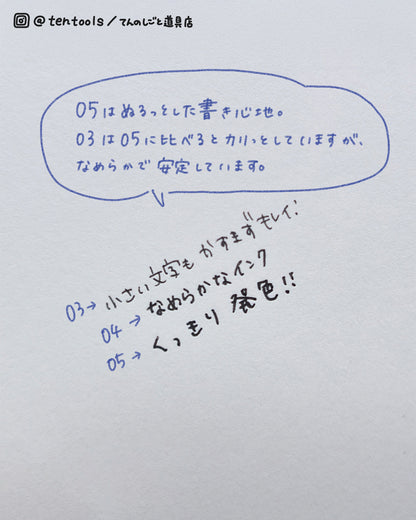 @tentools/てんのしごと道具店
05はぬるっとした書き心地。
03は05に比べるとカリっとしていますが、
なめらかで安定しています。
03→ 小さい文字もかすまずキレイ!
04→ なめらかなインク
05→ くっきり発色!!